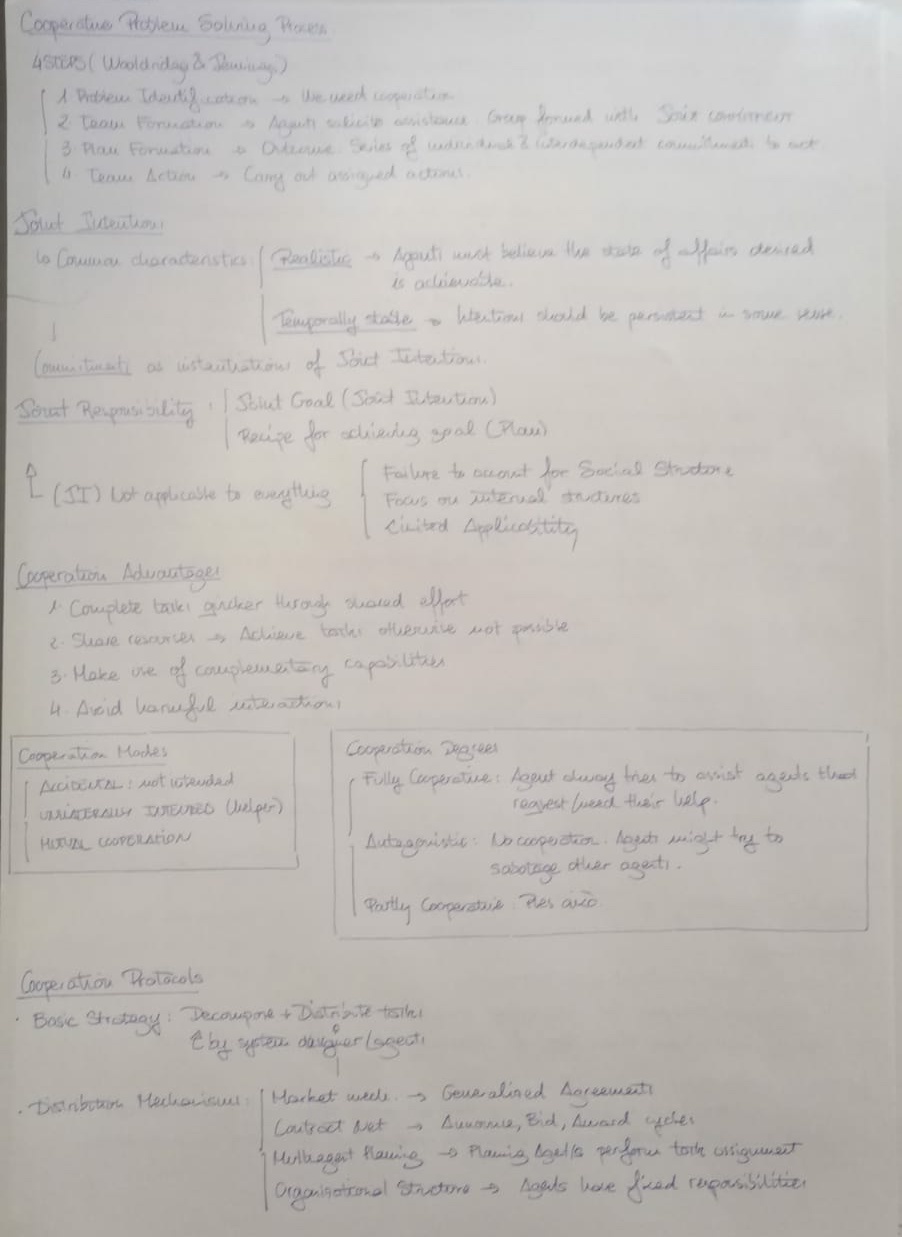 Cooperative Problem Solving Process
4 STEPS (Wooldridge & Jennings)
1 Problem Identification → We need cooperation
2. Team Formation → Agents solicits assistance. Group formed with Joint commitment
3. Plan Formation → Outcome: Series of individual & interdependent commitments to act.
4. Team Action → Carry out assigned actions.
Joint Intentions
↳ Common characteristics: Realistic → Agents must believe the state of affairs desired
is achievable.
Temporally stable → Intentions should be persistent in some sense.
Commitments as instantiations of Joint Intentions.
Joint Responsibility: Joint Goal (Joint Intention)
Recipe for achieving goal (Plan)
(JI) Not applicable to everything
Failure to account for Social Structure
Focus on internal structures
Limited Applicability
Cooperation Advantages
1. Complete tasks quicker through shared effort
2. Share resources → Achieve tasks otherwise not possible
3. Make use of complementary capabilities
4. Avoid harmful interactions
Cooperation Modes
ACCIDENTAL: not intended
UNILATERALLY INTENDED (helper)
MUTUAL COOPERATION
Cooperation Degrees
Fully Cooperative: Agent always tries to assist agents that
request/need their help.
Antagonistic: No cooperation. Agents might try to
sabotage other agents.
Partly Cooperative:
Cooperation Protocols
· Basic Strategy: Decompose + Distribute tasks
by system designer/agents
· Distribution Mechanisms: Market mech. → Generalised Agreements
Contract Net → Announce, Bid, Award cycles
Multiagent Planning → Planning Agents perform task assignment
Organisational Structure → Agents have fixed responsibilities